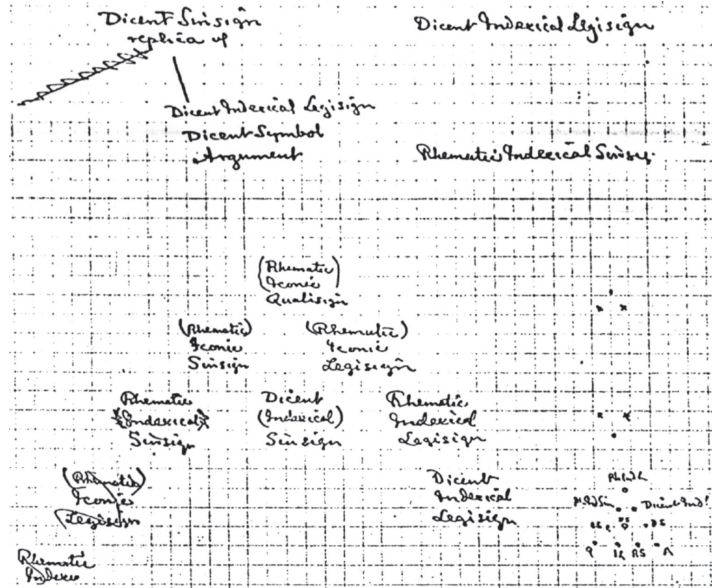 Dicent Sinsign
replica of
Dicent Indexical Legisign
Dicent Indexical Legisign
Dicent Symbol
Argument
Rhematic Indexical Sinsig.
(Rhematic)
Iconic
Qualisign
(Rhematic)
Iconic
Sinsign
(Rhematic)
Iconic
Legisign
Rhematic
(Indexical)
Sinsign
Dicent
(Indexical)
Sinsign
Rhematic
Indexical
Legisign
(Rhematic)
Iconic
Legisign
Dicent
Indexical
Legisign
DS
RS
Rhematic
Indexic